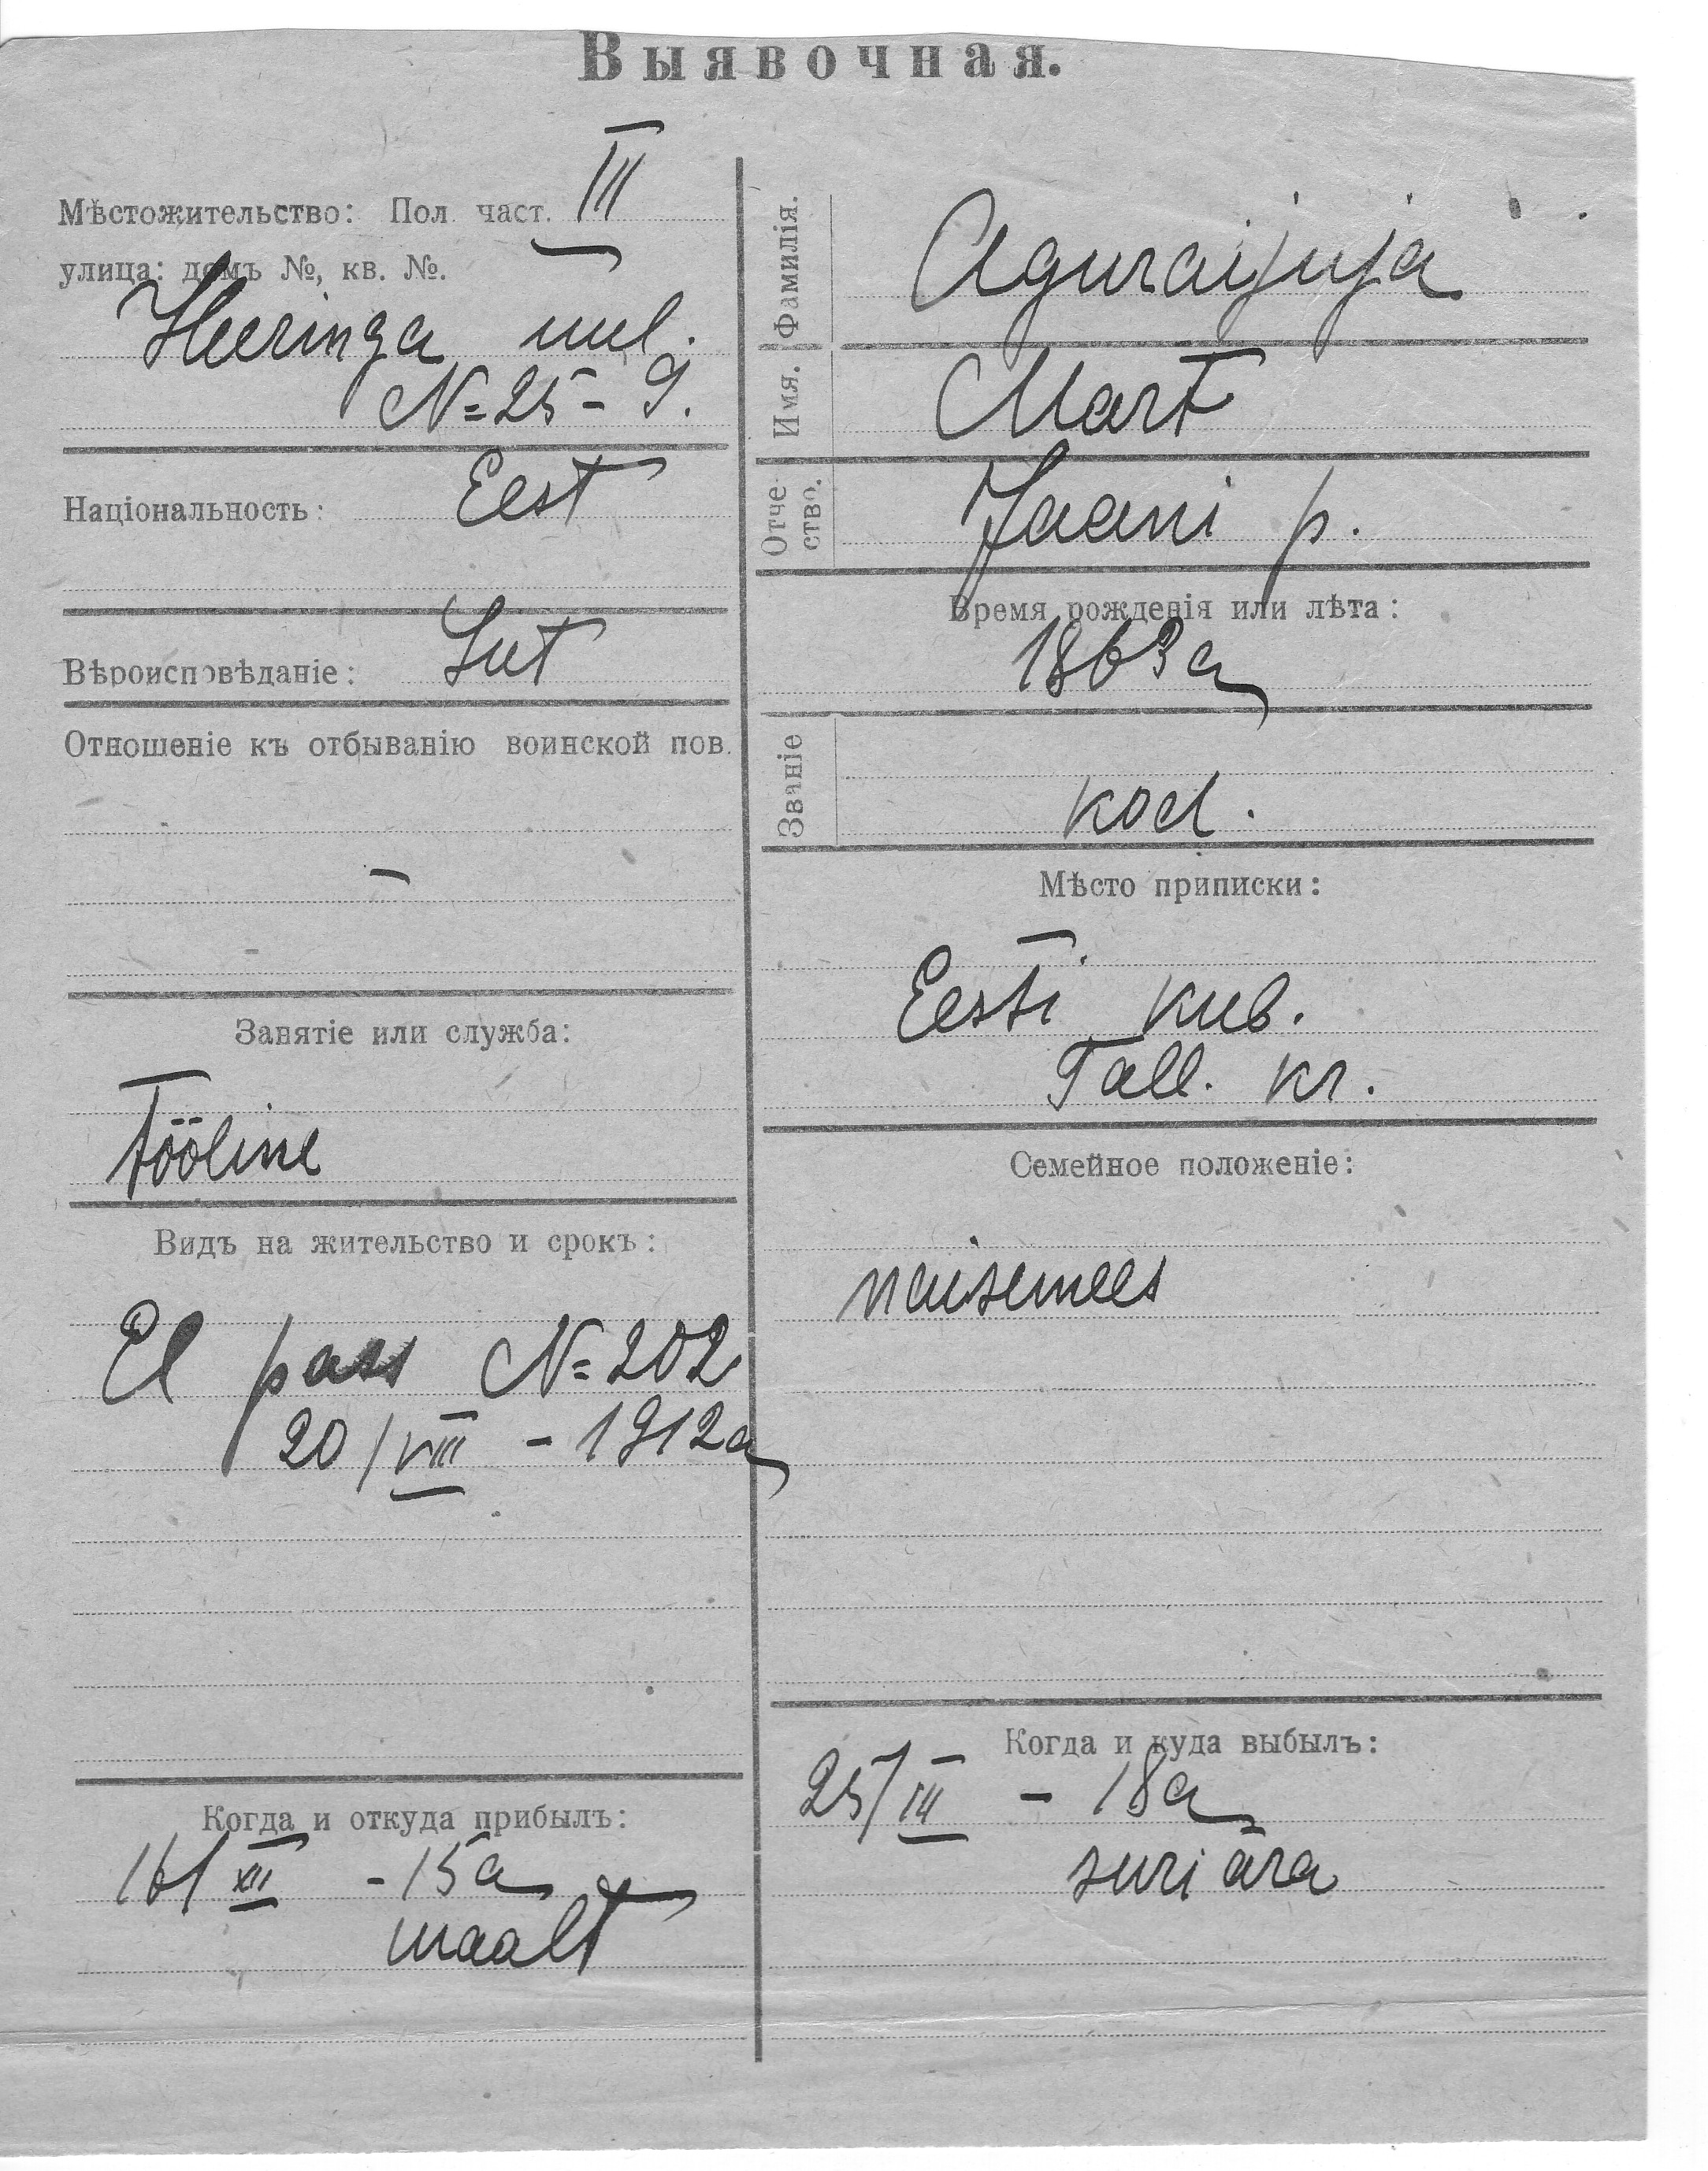 Выявочная.
Мѣстожительство: Пол. част. III
улица: домъ №, кв. №.
Heeringa uul.
№ 25 - 9.
Національность: Eest
Вѣроисповѣданіе: Lut
Отношеніе къ отбыванію воинской пов.
-
Занятіе или служба:
Tööline
Видъ на жительство и срокъ:
El pass № 202
20/VIII - 1912a
Когда и откуда прибылъ:
16/XII - 15a
maalt
Фамилія. Aguraijuja
Имя. Mart
Отче-
ство. Jaani p.
Время рожденія или лѣта:
1863a
Званіе kod.
Мѣсто приписки:
Eesti kub.
Tall. kr.
Семейное положеніе:
naisemees
Когда и куда выбылъ:
25/III - 18a
suri ära